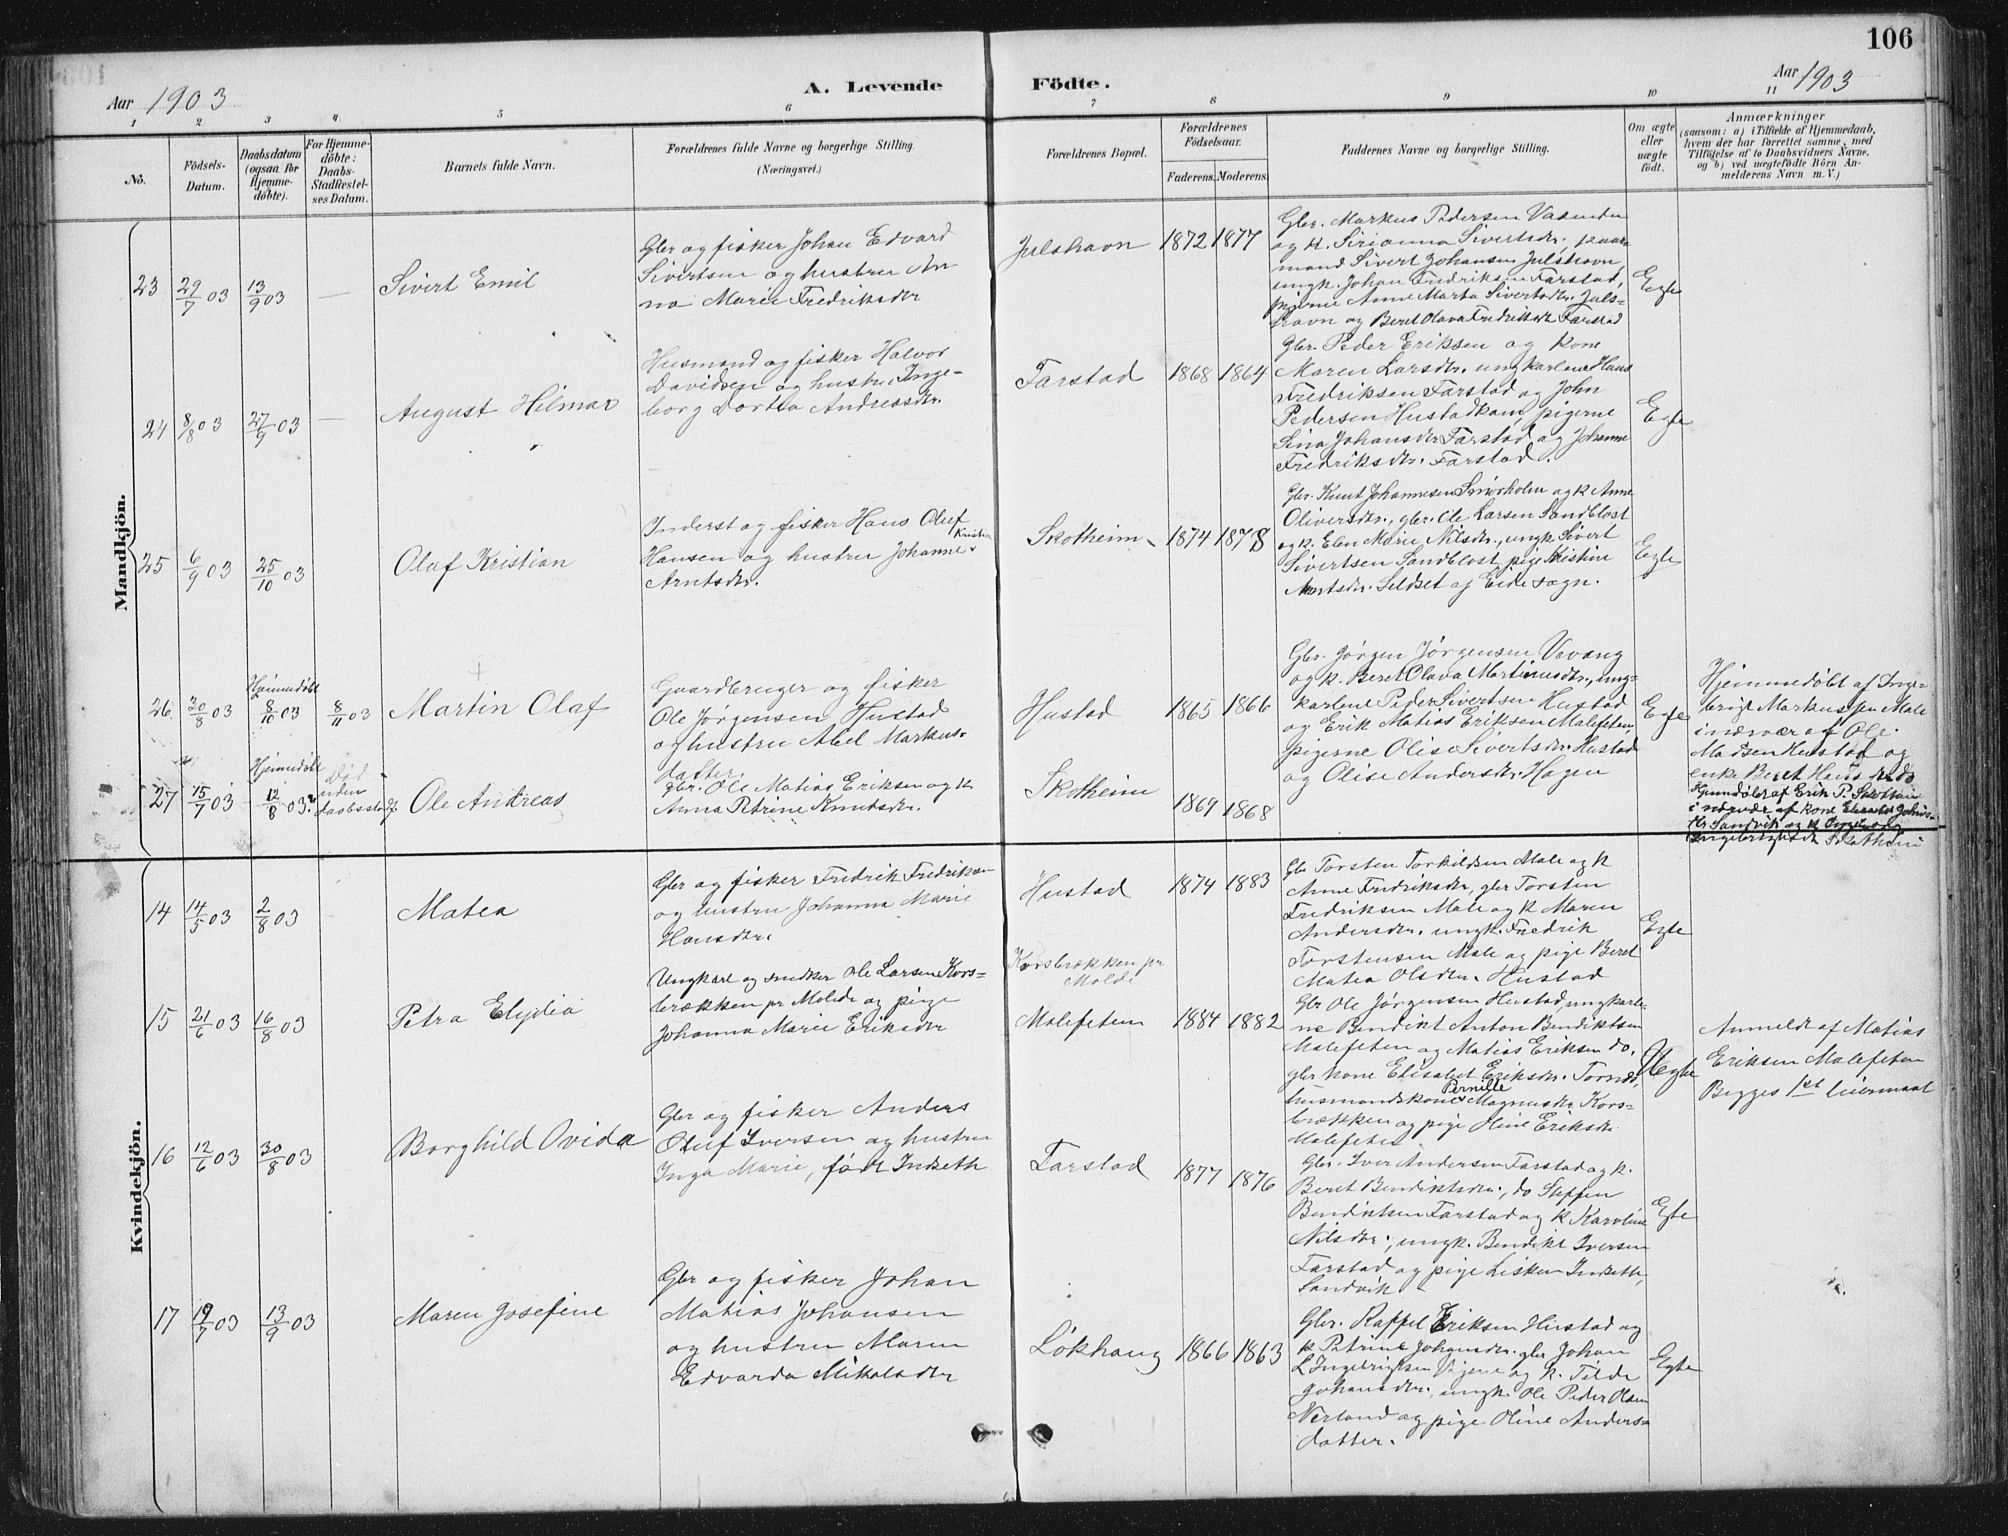 106
Aar 1903
A. Levende Födte.
Aar 1903
1 2 3 4 5 6 7 8 9 10 11
No.
Födsels-
Datum.
Daabsdatum
(ogsaa for
Hjemme-
döbte).
For Hjemme-
döbte:
Daabs-
Stadfæstel-
ses Datum.
Barnets fulde Navn.
Forældrenes fulde Navne og borgerlige Stilling.
(Næringsvei.)
Forældrenes Bopæl.
Forældrenes
Födselsaar.
Faderens. Moderens.
Faddernes Navne og borgerlige Stilling.
Om ægte
eller
uægte
födt.
Anmærkninger
(saasom: a) i Tilfælde af Hjemmedaab,
hvem der har forrettet samme, med
Tilföielse af to Daabsvidners Navne,
og b) ved uægtefödte Börn An-
melderens Navn m. V.)
Mandkjön.
23 29/7 03 13/9 03 —
Sivert Emil
Gbr og fisker Johan Edvard
Sivertsen og hustru An-
na Marie Fredriksdtr
Julshavn 1872 1877
Gbr. Markus Pedersen Vasenden
og k. Serianna Sivertsdtr,
mand Sivert Johansen Julshavn
ungk. Johan Fredriksen Farstad,
pigerne Anne Marta Sivertsdtr. Juls-
havn og Beret Olava Fredriksdtr Farstad
Egte
24 8/8 03 27/9 03 —
August Hilmar
Husmand og fisker Halvor
Davidsen og hustru Inge-
borg Dortea Andreasdtr.
Farstad 1868 1864
Gbr. Peder Eriksen og kone
Maren Larsdtr. ungkarlene Hans
Fredriksen Farstad og John
Pedersen Hustadkam, pigerne
Sina Johansdtr Farstad og Johanne
Fredriksdtr. Farstad.
Egte
25 6/9 03 25/10 03
Olaf Kristian
Inderst og fisker Hans Oluf
Kristian
Hansen og hustru Johanne
Arntsdtr.
Skotheim 1874 1878
Gbr. Knut Johannesen Smørholm og k Anne
Oliversdtr., gbr. Ole Larsen Sandblost
og k. Elen Marie Nilsdtr., ungk Sivert
Sivertsen Sandblost, pige Kristine
Arntsdtr. Seldset af Eide sogn.
Egte
26. 30/8 03 Hjemmedøbt 8/10 03 8/11 03
Martin Olaf
Gaardbruger og fisker
Ole Jørgensen Hustad
og hustru Abel Markus-
datter.
Hustad 1865 1866
Gbr. Jørgen Jørgensen Vevang
og k. Beret Olava Martinusdtr., ung-
karlene Peder Sivertsen Hustad
og Erik Matias Eriksen Malefeten,
pigerne Olise Sivertsdtr. Hustad
og Olise Andersdtr. Hagen
Egte
Hjemmedøbt af Inge-
brigt Markussen Male
i nærvær af Ole
Madsen Hustad og
enke Beret Hansdtr do
27 15/7 03 Hjemmedøbt 12/8 03. Død
uden
daabsstadf.
Ole Andreas
gbr. Ole Matias Eriksen og k
Anna Petrine Knutsdtr.
Skotheim 1869 1868
Hjemdøbt af Erik P. Skotheim
i nærvær af kone Elisabet Johns-
dtr Sandvik og k Ingeborg
Ingebrigtsdtr Skotheim
Kvindekjön.
14 14/5 03 2/8 03
Matea
Gbr og fisker Fredrik Fredriksen
og hustru Johanna Marie
Hansdtr.
Hustad 1874 1883
Gbr Torsten Torkildsen Male og k
Anne Fredriksdtr, gbr Torsten
Fredriksen Male og k Maren
Andersdtr. ungk. Fredrik
Torstensen Male og pige Beret
Matea Olsdtr. Hustad
Egte
15 21/6 03 16/8 03
Petra Elydia
Ungkarl og snedker Ole Larsen Kors-
brækken pr Molde og pige
Johanna Marie Eriksdtr
Korsbrækken pr
Molde
Malefeten 1884 1882
Gbr Ole Jørgensen Hustad, ungkarle-
ne Bendikt Anton Bendiktsen
Malefeten og Matias Eriksen do,
gbr kone Elisabet Eriksdtr. Tornes
Pernille
husmandskone Magnusdtr Kors-
brækken og pige Eriksdtr.
Malefeten
Uegte
Anmeldt af Matias
Eriksen Malefeten
Begges 1ste leiermaal
16 12/6 03 30/8 03
Borghild Ovida
Gbr og fisker Anders
Oluf Iversen og hustru
Inga Marie, født Indseth
Farstad 1877 1876
Gbr. Iver Andersen Farstad og k.
Beret Bendiktsdtr., do Steffen
Bendiktsen Farstad og k Karoline
Nilsdtr., ungk. Bendikt Iversen
Farstad og pige Lisken Indseth,
Sandvik
Egte
17 19/7 03 13/9 03
Maren Josefine
Gbr og fisker Johan
Matias Johansen
og hustru Maren
Edvarda Mikalsdtr
Løkhaug 1866 1863
Gbr. Raffel Eriksen Hustad og
k Petrine Johansdtr. gbr Johan
L Ingebrigtsen og k. Tilde
Johansdtr., ungk. Ole Peder Olsen
Nerland og pige Oline Anders-
datter.
Egte